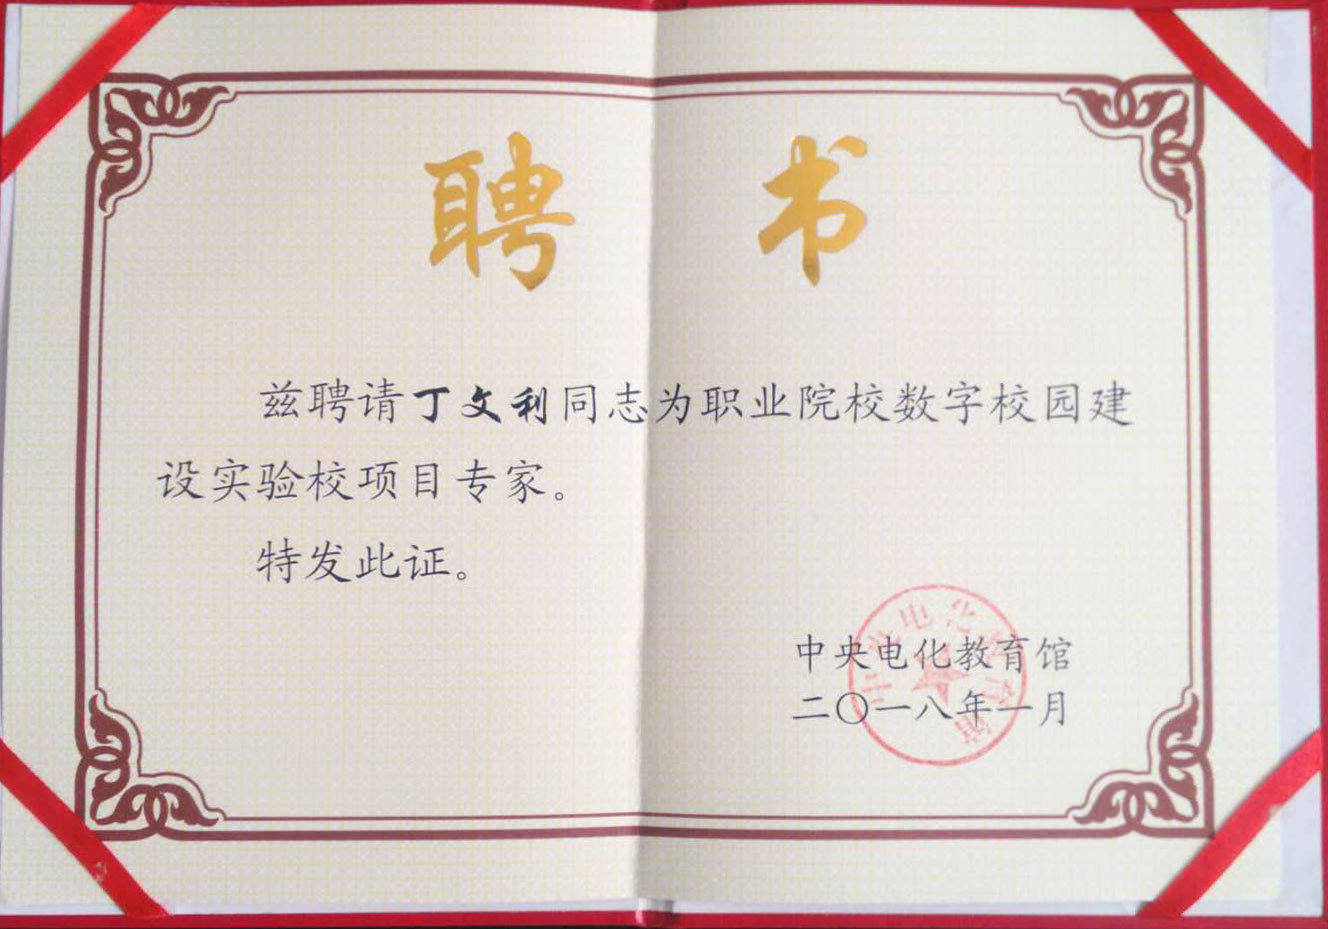 聘书
兹聘请丁文利同志为职业院校数字校园建
设实验校项目专家。
特发此证。
中央电化教育馆
二〇一八年一月
中央电化教育馆